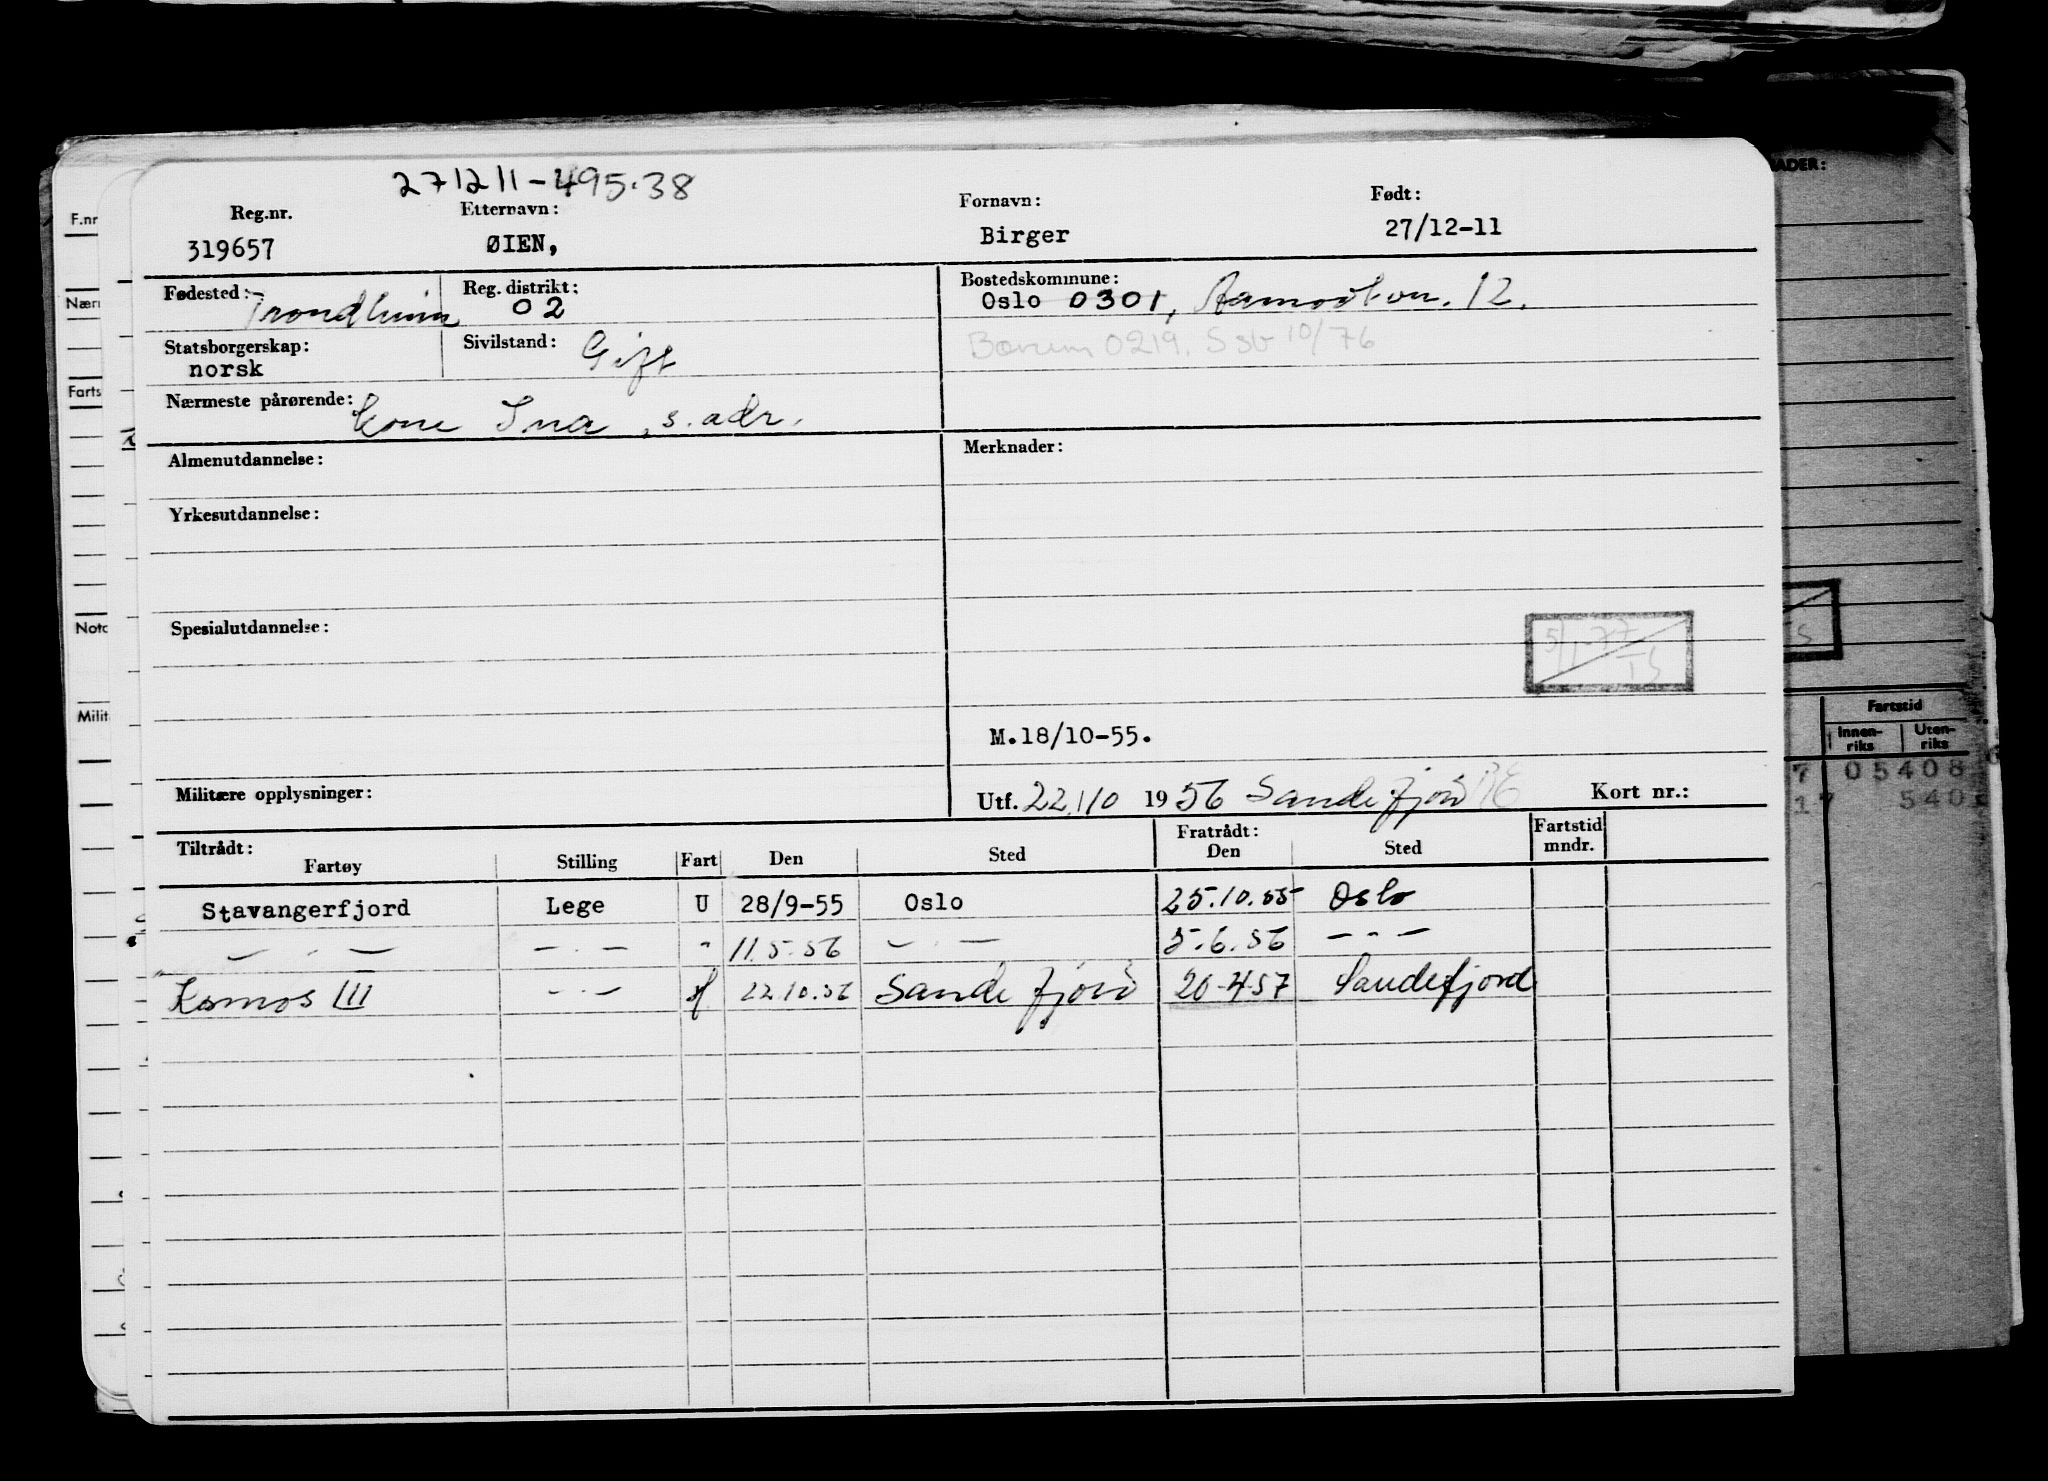 271211-495.38
Reg.nr. Etternavn: Fornavn: Født:
319657 ØIEN, Birger 27/12-11
Fødested: Trondheim Reg. distrikt: 02 Bostedskommune: Oslo 0301, 12.
Statsborgerskap: norsk Sivilstand: Gift Bærum 0219. Ssb 10/76
Nærmeste pårørende: Kone Ina, s. adr.
Almenutdannelse: Merknader:
Yrkesutdannelse:
Spesialutdannelse:
5/1-77
TS
M.18/10-55.
Militære opplysninger: Utf. 22/10 1956 Sandefjord Kort nr.:
Tiltrådt: Fratrådt: Fartstid mndr.
Fartøy Stilling Fart Den Sted Den Sted
Stavangerfjord Lege U 28/9-55 Oslo 25.10.55 Oslo
— . — — . — " 11.5.56 — . — 5.6.56 — - —
Kosmos III — . — H 22.10.56 Sandefjord 20-4-57 Sandefjord
F.nr
Nærr
Farts
Notc
Milit
ADER:
TS
Fartstid
Innen-riks Uten-riks
7 05408
17 540